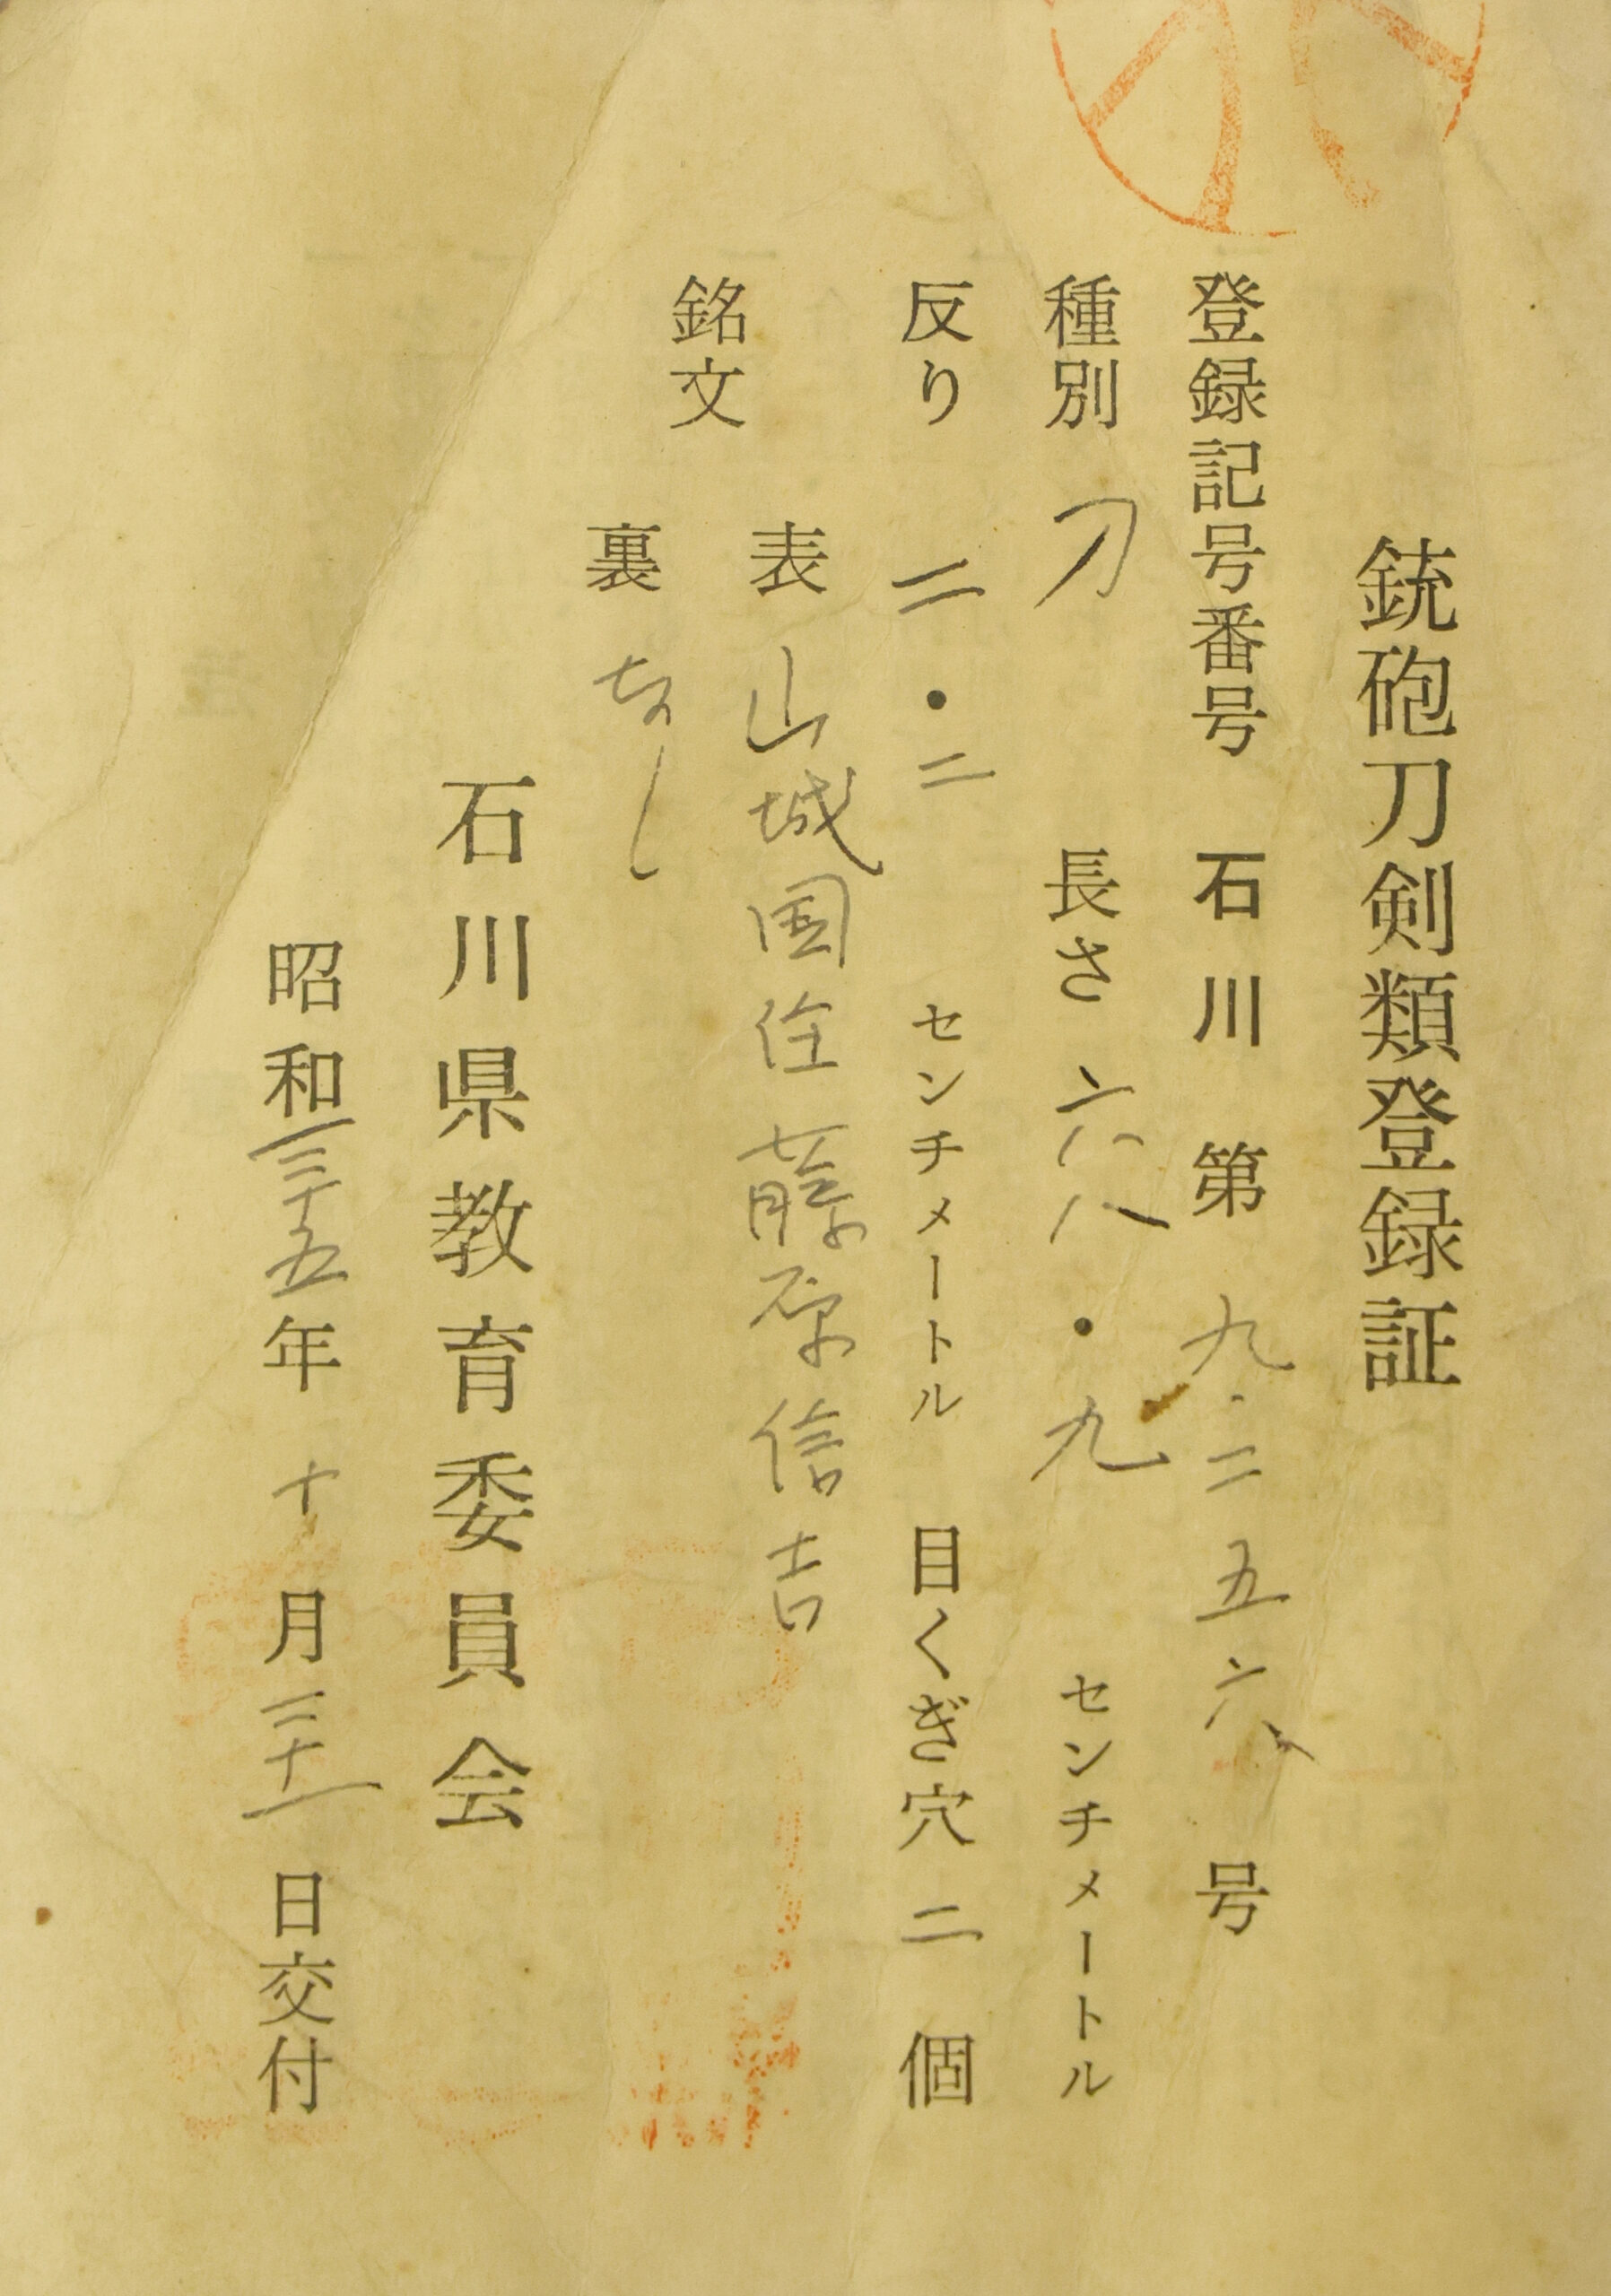 銃砲刀剣類登録証
登録記号番号 石川 第 九・二五六 号
種別 刀 長さ 六八・九 センチメートル
反り 二・二 センチメートル 目くぎ穴 二 個
銘文 表 山城国住藤原信吉
裏 なし
石川県教育委員会
昭和三十五年 十 月
日交付